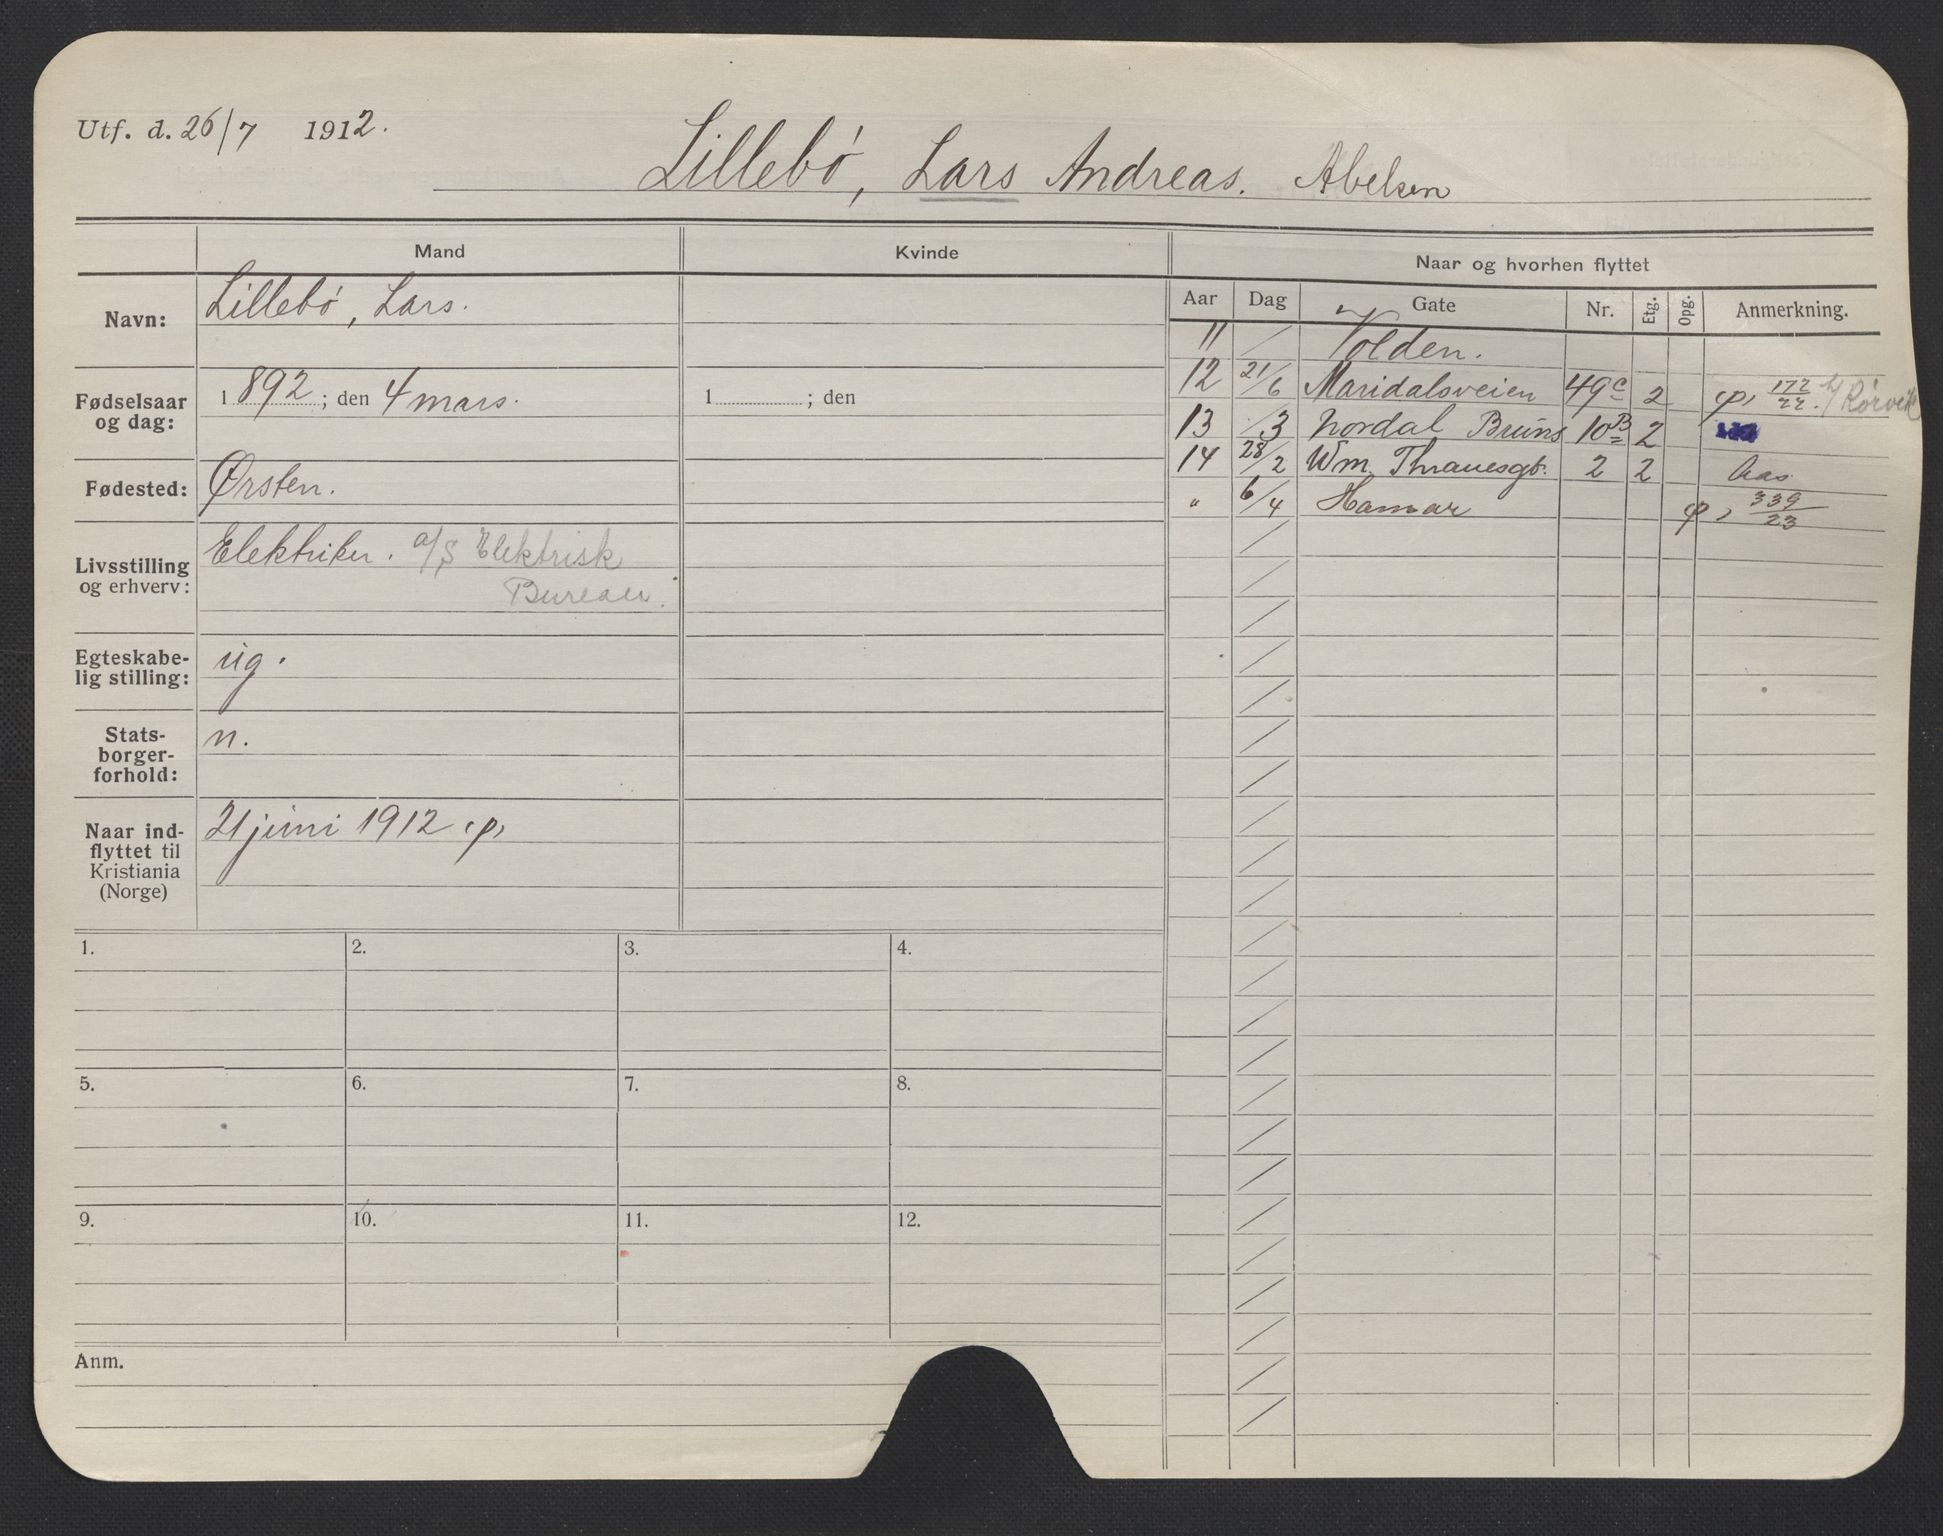 Utf. d. 26/7 1912.
Lillebö, Lars Andreas. Abelsen
Mand
Kvinde
Naar og hvorhen flyttet
Navn:
Lillebö, Lars.
Fødselsaar og dag:
1892; den 4 mars.
1 ; den
Fødested:
Ørsten.
Livsstilling og erhverv:
Elektriker. a/S Elektrisk
Bureau.
Egteskabelig stilling:
ug.
Statsborgerforhold:
n.
Naar indflyttet til Kristiania (Norge)
21 juni 1912 φ,
Aar Dag Gate Nr. Etg. Opg. Anmerkning.
11 / Volden.
12 21/6 Maridalsveien 49c 2 φ, 172/22. h/ Rörvik
13 /3 Nordal Bruns 10B 2
14 28/2 Wm. Thranesgt. 2 2 Aas.
" 6/4 Hamar φ, 339/23
1. 2. 3. 4.
5. 6. 7. 8.
9. 10. 11. 12.
Anm.